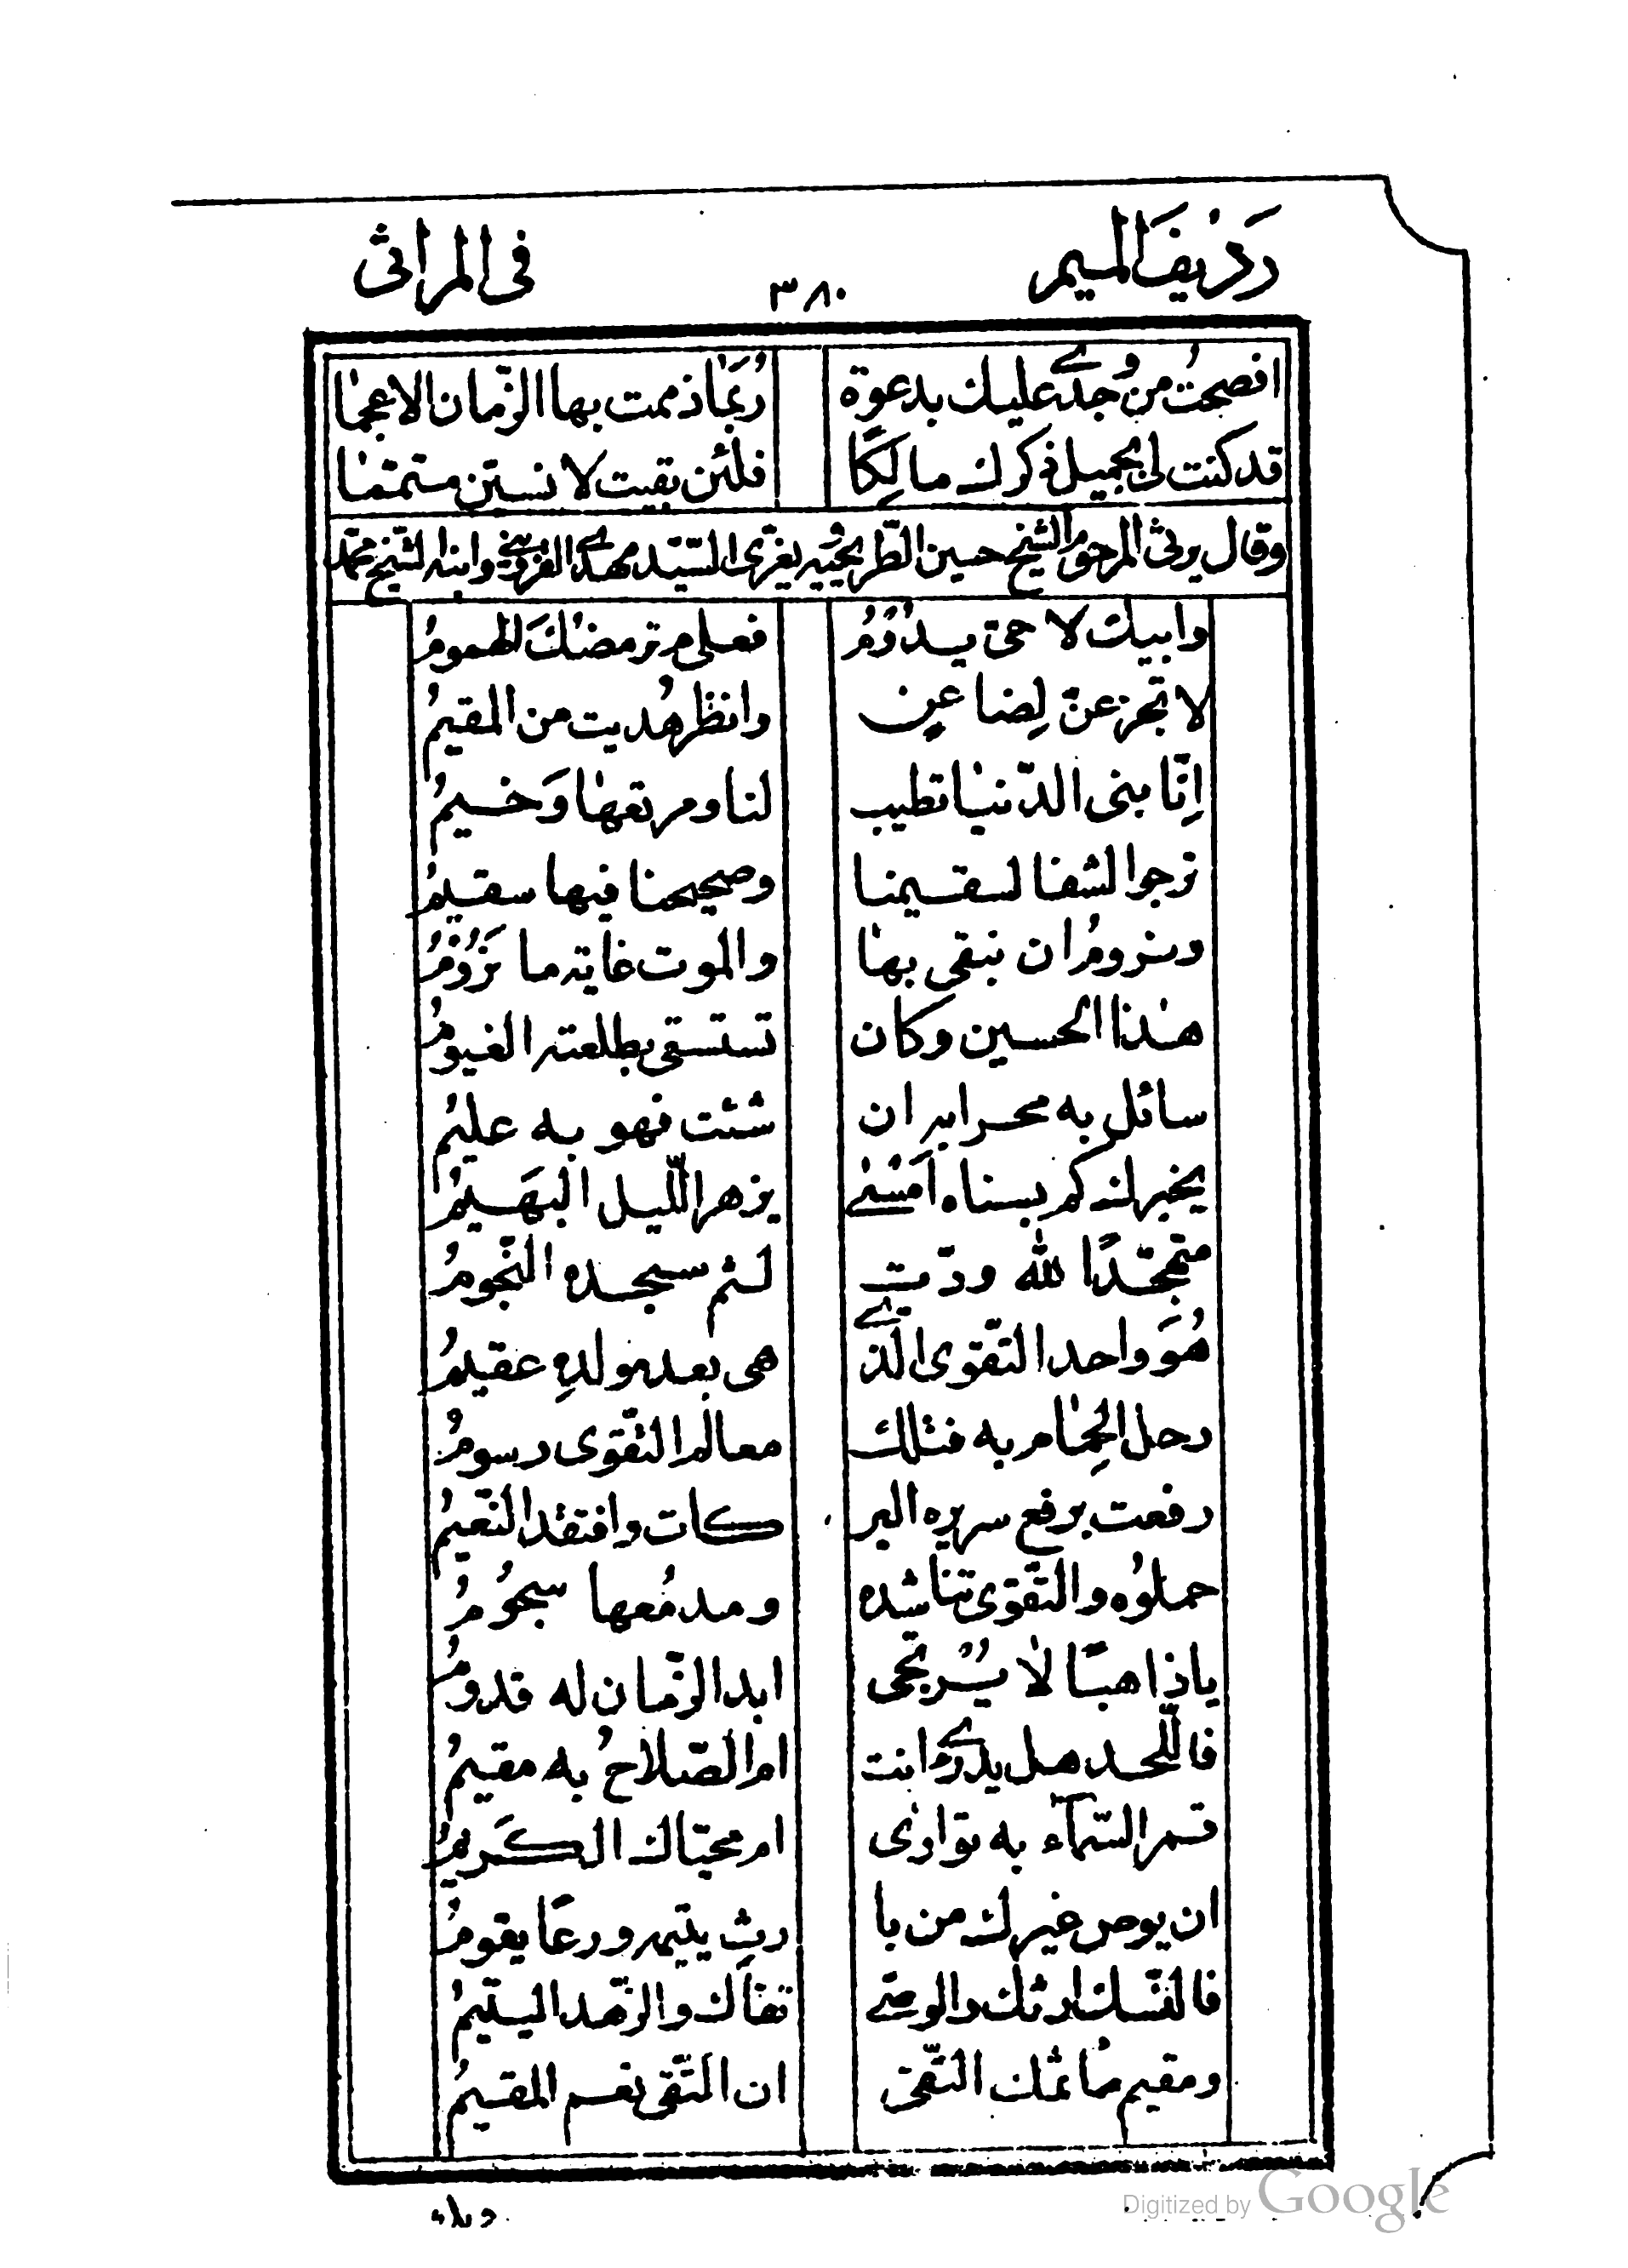 رديف الميم ٣٨٠ في المراثى
افصحت من وجدے عليك بدعوة ربما ذممت بها الزمان الاعجما
قد كنت لى بجميل ذكرك مالكا فلئن بقيت لا نسين متمما
وقال يرثى المرحوم الشيخ حسين الطريحى ويعزى السيد مهدے القزوينے وابنه الشيخ محمد
وابيك لا حى يدوم فعلام ترمضك الهموم
لا تجزعن لضاعن وانظر هديت من المقيم
انا بنى الدنيا تطيب لنا ومربعها وخيم
نرجوا الشفا لسقيمنا وصحيحنا فيها سقيم
ونروم ان نبقى بها والموت غاية ما نروم
هذا الحسين وكان تستسقى بطلعته الغيوم
سائل به محرابه ان شئت فهو به عليم
يخبرك كم بسناه امسے يزهر الليل البهيم
متهجدا لله ودت لثم مسجده النجوم
هو واحد التقوى الذے هى بعد مولده عقيم
رحل الحمام به فتلك معالم التقوى رسوم
رفعت برفع سريره البر كات وافتقد النعيم
حملوه والتقوى تناشده ومدمعها سجوم
يا ذاهبا لا يرتجى ابد الزمان له قدوم
فاللحد هل يدرے ءانت ام الصلاح به مقيم
قمر السماء به توارى ام محياك الكريم
ان يوص غيرك من با رث يتيم ورعا يقوم
فالنسك ارثك والوصے تقاك والزهد اليتيم
ومقيم مأتمك التقى ان التقى نعم المقيم
Digitized by Google